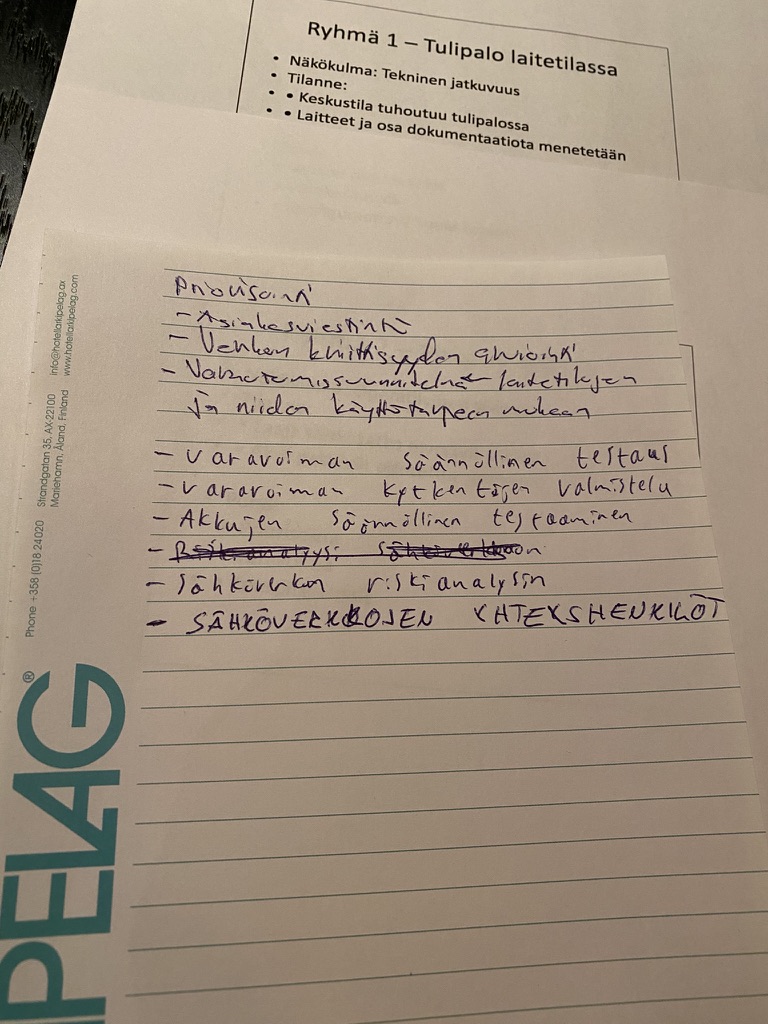 Ryhmä 1 – Tulipalo laitetilassa
• Näkökulma: Tekninen jatkuvuus
• Tilanne:
• • Keskustila tuhoutuu tulipalossa
• • Laitteet ja osa dokumentaatiota menetetään
Priorisointi
- Asiakasviestintä
- Verkon kriittisyyden arviointi
- Valmistautumissuunnitelma laitetilojen
ja niiden käyttötarpeen mukaan
- varavoiman säännöllinen testaus
- varavoiman kytkentöjen valmistelu
- Akkujen säännöllinen testaaminen
- Riskianalyysi sähköverkkoon
- Sähköverkon riskianalysin
- SÄHKÖVERKKOJEN YHTEYSHENKILÖT
info@hotellarkipelag.ax
www.hotellarkipelag.com
Strandgatan 35, AX-22100
Mariehamn, Åland, Finland
Phone +358 (0)18 24020
PELAG®